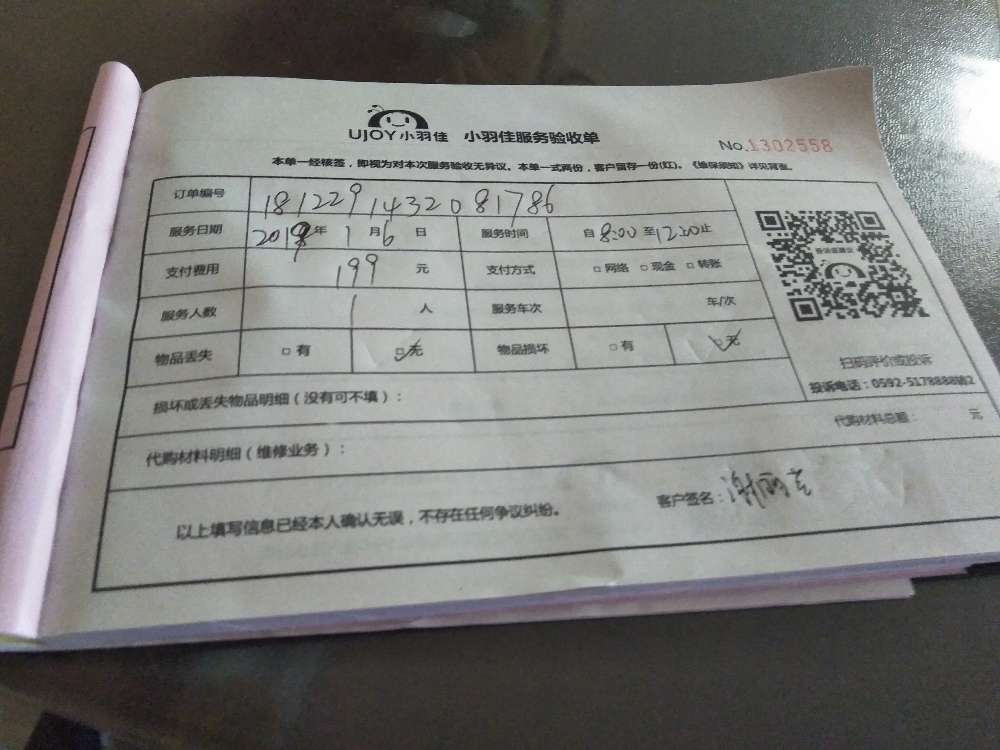 UJOY小羽佳 小羽佳服务验收单
No.1302558
本单一经核签，即视为对本次服务验收无异议。本单一式两份，客户留存一份(红)。《维保须知》详见背张。
订单编号 1812291432081786
服务日期 2019年1月6日 服务时间 自8:00至12:00止
支付费用 199元 支付方式 □网络 □现金 □转账
服务人数 1人 服务车次 年/次
物品丢失 □有 ☑无 物品损坏 □有 ☑无
扫码评价或投诉
投诉电话：0592-5178888转2
损坏或丢失物品明细（没有可不填）：
代购材料明细（维修业务）： 代购材料总额： 元
以上填写信息已经本人确认无误，不存在任何争议纠纷。 客户签名：谢丽